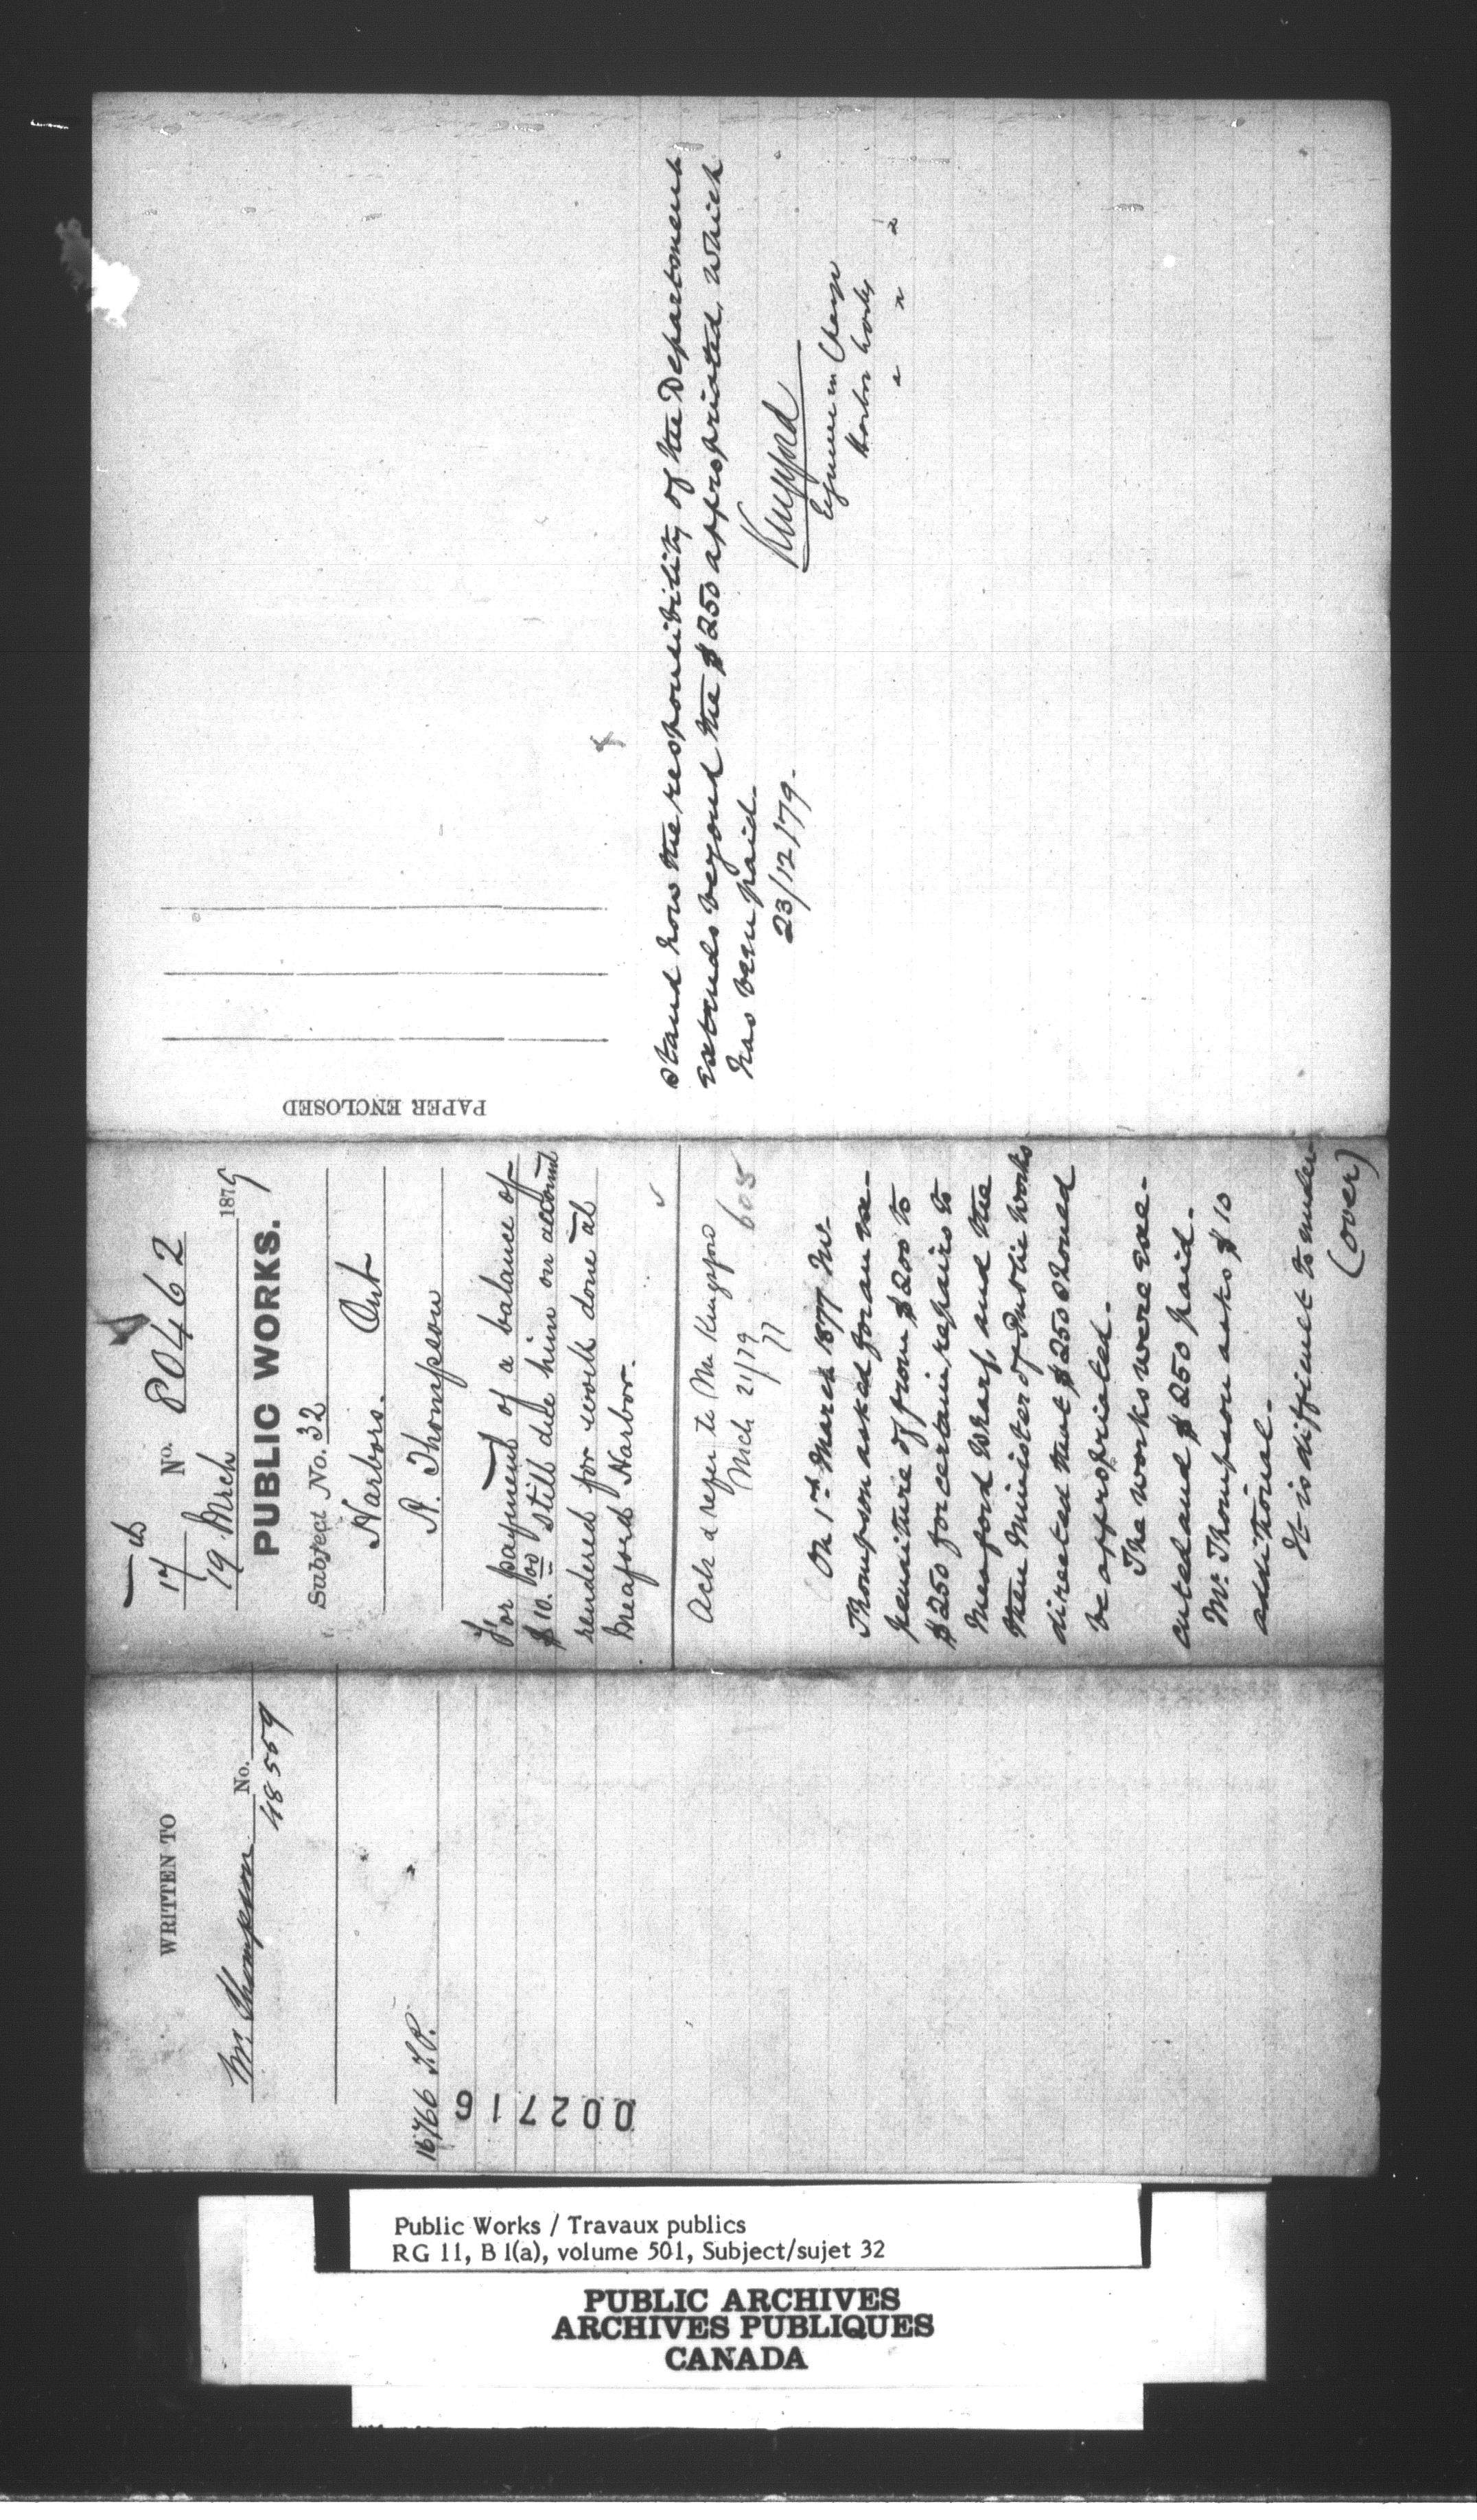 17
No. 80462
19 Mrch 1879
PUBLIC WORKS.
Subject No. 32
Harbors. Ont
A. Thompson
For payment of a balance of
$10.00 still due him on account
rendered for work done at
Meaford Harbor.
Ack & refer to Mr Kingsford
Mch 21/79
77
605
On 1st March 1877 Mr
Thompson asked for an ex-
penditure of from $200 to
$250 for certain repairs to
Meaford Wharf, and the
then Minister of Public Works
directed that $250 should
be appropriated.
The works were exe-
cuted and $250 paid.
Mr Thompson asks $10
additional.
It is difficult to under-
(over)
stand how the responsibility of the Department
extends beyond the $250 appropriated, which
has been paid.
23/12/79-
Kingsford
Engineer in Charge
Harbor Works
PAPER ENCLOSED
WRITTEN TO
Mr Thompson No.
48559
16766 T.P.
002716
Public Works / Travaux publics
RG 11, B 1(a), volume 501, Subject/sujet 32
PUBLIC ARCHIVES
ARCHIVES PUBLIQUES
CANADA